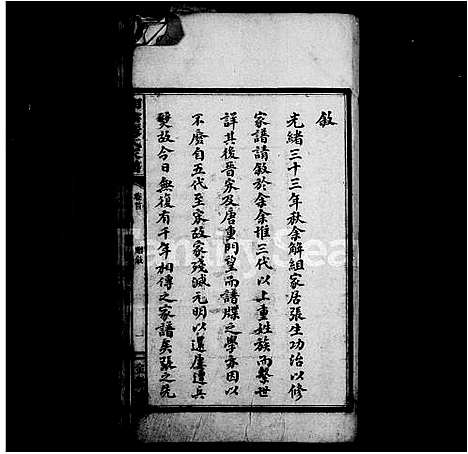 敘
光緒三十三年秋余解組家居張生功治以修
家譜請敘於余余推三代以上重姓族而繫世
詳其後晉宋及唐重門望而譜牒之學亦因以
不廢自五代至宋故家殘滅元明以還屢遭兵
燹故今日無復有千年相傳之家譜矣張之先
卷首
贈敘
FamilySea